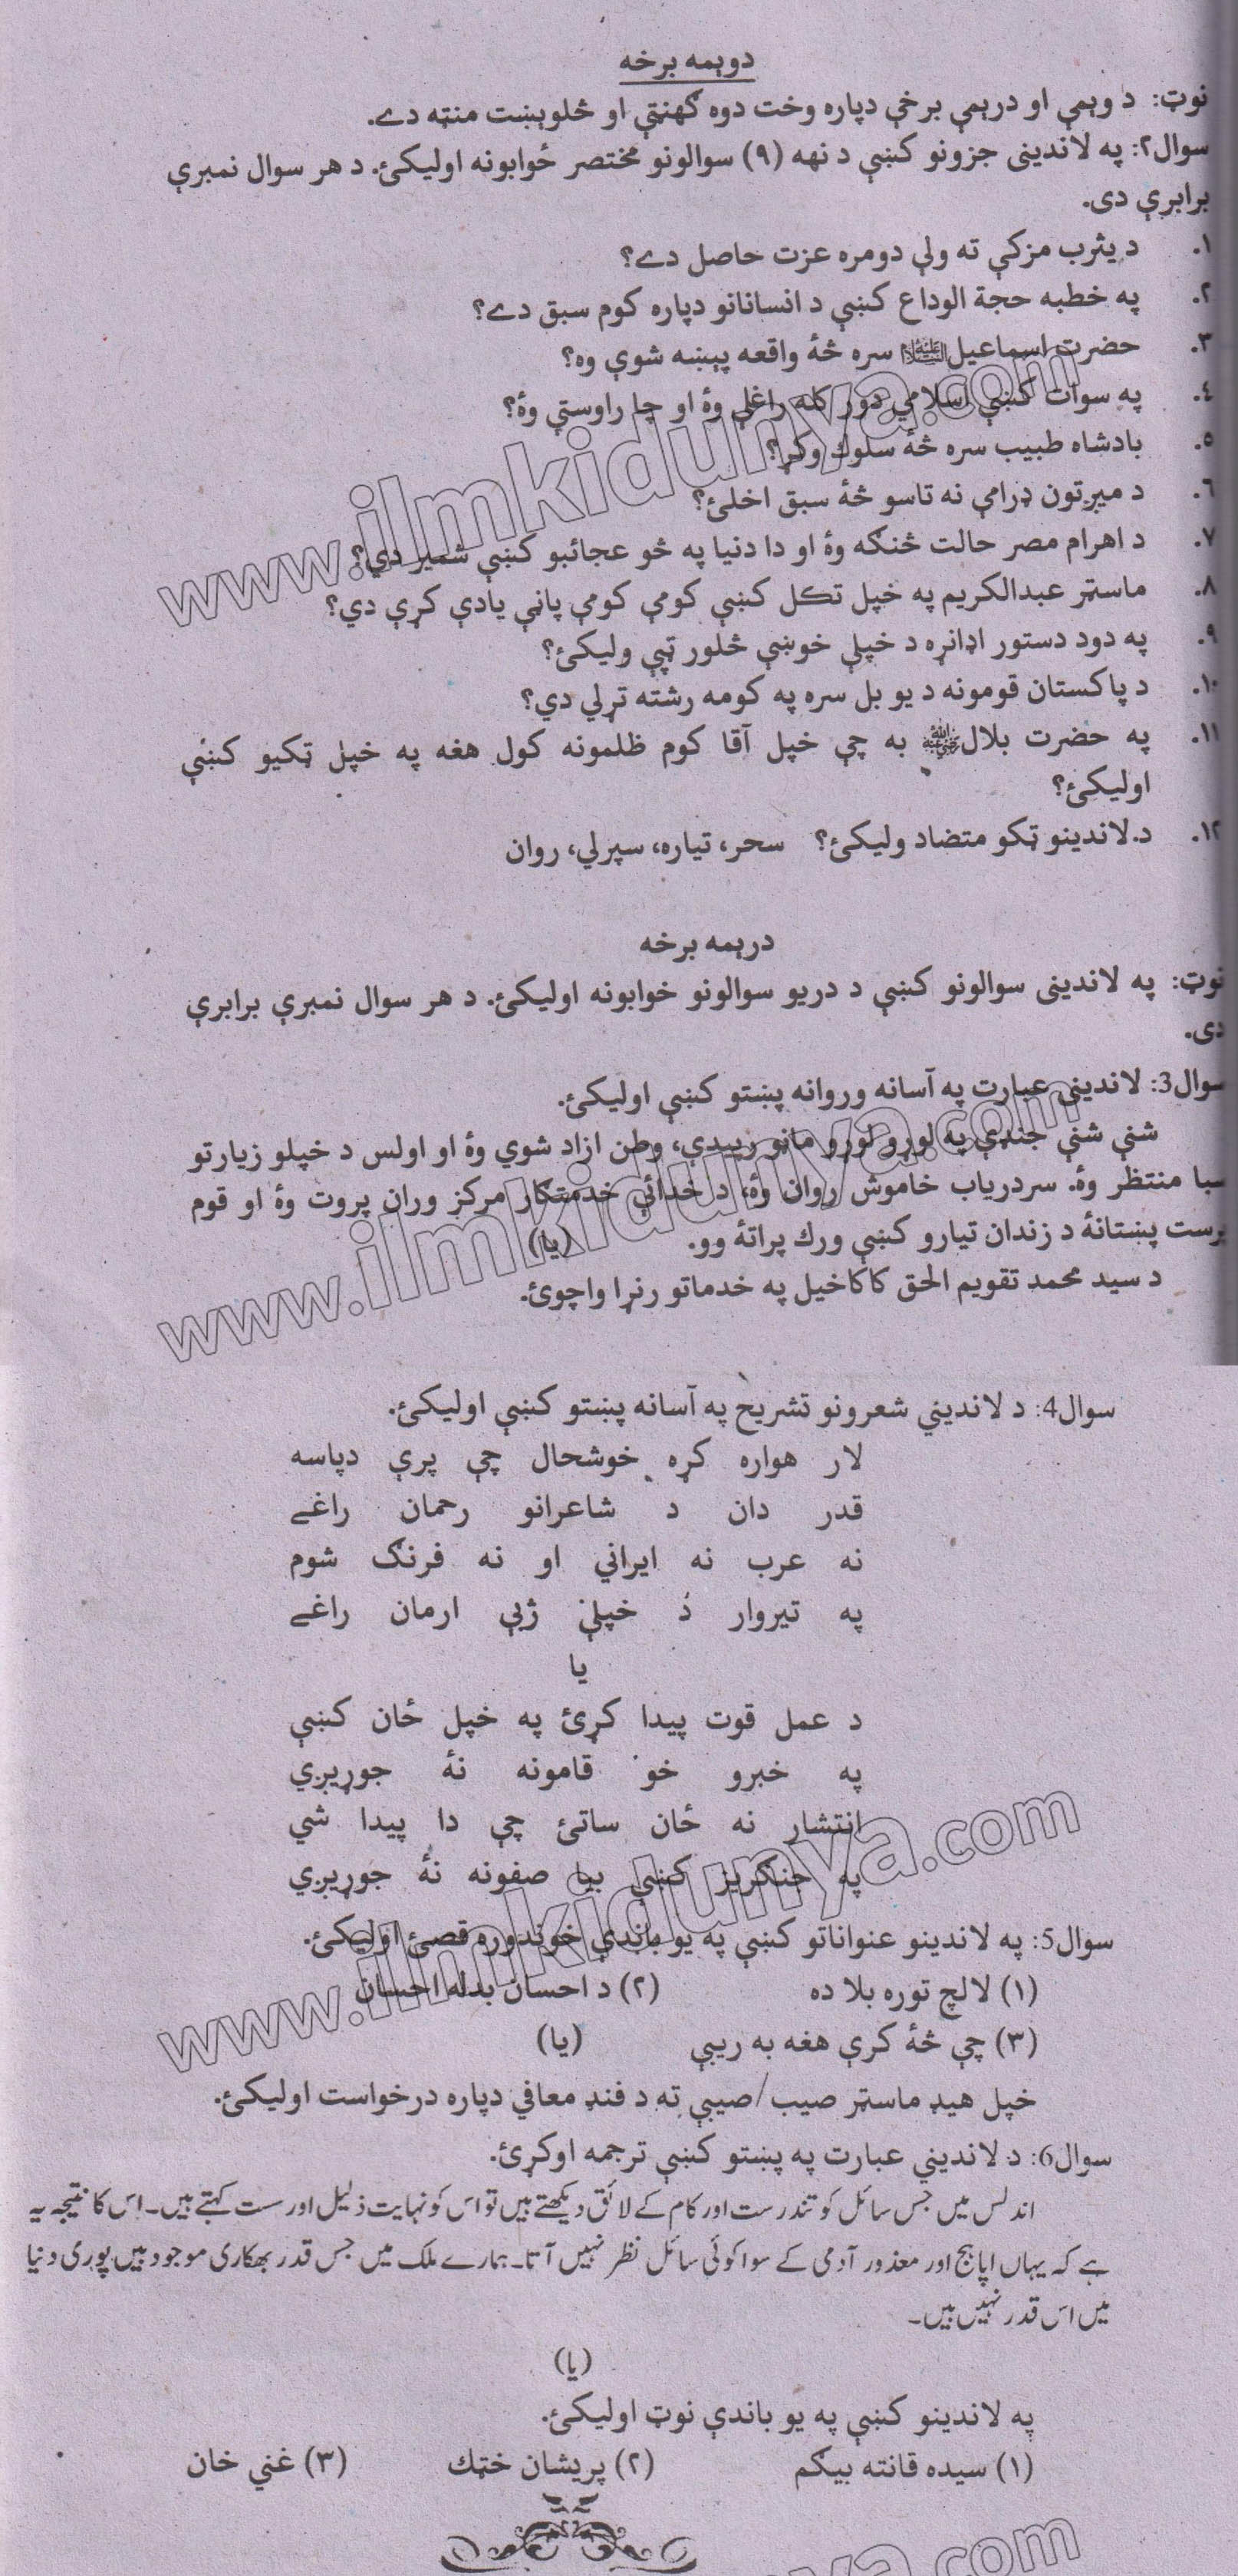 دوېمه برخه
نوټ: د وېمې او درېمې برخې دپاره وخت دوه ګهنټې او څلوېښت منټه دے.
سوال۲: په لاندینی جزونو کښې د نهه (۹) سوالونو مختصر ځوابونه اولیکئ. د هر سوال نمبرې
برابرې دی.
۱. د یثرب مزکې ته ولې دومره عزت حاصل دے؟
۲. په خطبه حجة الوداع کښې د انسانانو دپاره کوم سبق دے؟
۳. حضرت اسماعیل علیہ السلام سره څۀ واقعه پېښه شوې وه؟
٤. په سوات کښې اسلامي دور کله راغلې وۀ او چا راوستې وۀ؟
٥. بادشاه طبیب سره څۀ سلوك وکړا؟
٦. د میړتون ډرامې نه تاسو څۀ سبق اخلئ؟
۷. د اهرام مصر حالت څنګه وۀ او دا دنیا په څو عجائبو کښې شمیر دي؟
۸. ماسټر عبدالکریم په خپل تکل کښې کومې کومې پاڼې یادې کړې دي؟
۹. په دود دستور اډانړه د خپلې خوښې څلور ټپې ولیکئ؟
۱۰. د پاکستان قومونه د یو بل سره په کومه رشته تړلي دي؟
۱۱. په حضرت بلال رضی اللہ عنہ به چې خپل آقا کوم ظلمونه کول هغه په خپل ټکیو کښې
اولیکئ؟
۱۲. د لاندینو ټکو متضاد ولیکئ؟ سحر، تیاره، سپرلي، روان
درېمه برخه
نوټ: په لاندینی سوالونو کښې د دریو سوالونو خوابونه اولیکئ. د هر سوال نمبرې برابرې
دی.
سوال3: لاندینی عبارت په آسانه وروانه پښتو کښې اولیکئ.
شنې شنې جنډې په لوړو لوړو مانړو رپېدې، وطن ازاد شوي وۀ او اولس د خپلو زیارتو
سبا منتظر وۀ. سردریاب خاموش روان وۀ، د خدائي خدمتګار مرکز وران پروت وۀ او قوم
پرست پښتانۀ د زندان تیارو کښې ورك پراتۀ وو. (یا)
د سید محمد تقویم الحق کاکاخیل په خدماتو رنړا واچوئ.
سوال4: د لاندیني شعرونو تشریح په آسانه پښتو کښې اولیکئ.
لار هواره کړه خوشحال چې پرې دپاسه
قدر دان د شاعرانو رحمان راغے
نه عرب نه ایراني او نه فرنګ شوم
په تیروار دَ خپلې ژبې ارمان راغے
یا
د عمل قوت پیدا کړئ په خپل ځان کښې
په خبرو خو قامونه نۀ جوړیږي
انتشار نه ځان ساتئ چې دا پیدا شي
په جنګریز کښې بیا صفونه نۀ جوړیږي
سوال5: په لاندینو عنواناتو کښې په یو باندې خوندوره قصئ اولیکئ.
(۱) لالچ توره بلا ده (۲) د احسان بدله احسان
(۳) چې څۀ کرې هغه به ریبې (یا)
خپل هیډ ماسټر صیب/صیبې ته د فنډ معافي دپاره درخواست اولیکئ.
سوال6: د لاندیني عبارت په پښتو کښې ترجمه اوکړئ.
اندلس میں جس سائل کو تندرست اور کام کے لائق دیکھتے ہیں تو اس کو نہایت ذلیل اور ست کہتے ہیں۔ اس کا نتیجہ یہ
ہے کہ یہاں اپاہج اور معذور آدمی کے سوا کوئی سائل نظر نہیں آتا۔ ہمارے ملک میں جس قدر بھکاری موجود ہیں پوری دنیا
میں اس قدر نہیں ہیں۔
(یا)
په لاندینو کښې په یو باندې نوټ اولیکئ.
(۱) سیده قانته بیګم (۲) پریشان خټك (۳) غني خان
www.ilmkidunya.com
www.ilmkidunya.com
www.ilmkidunya.com